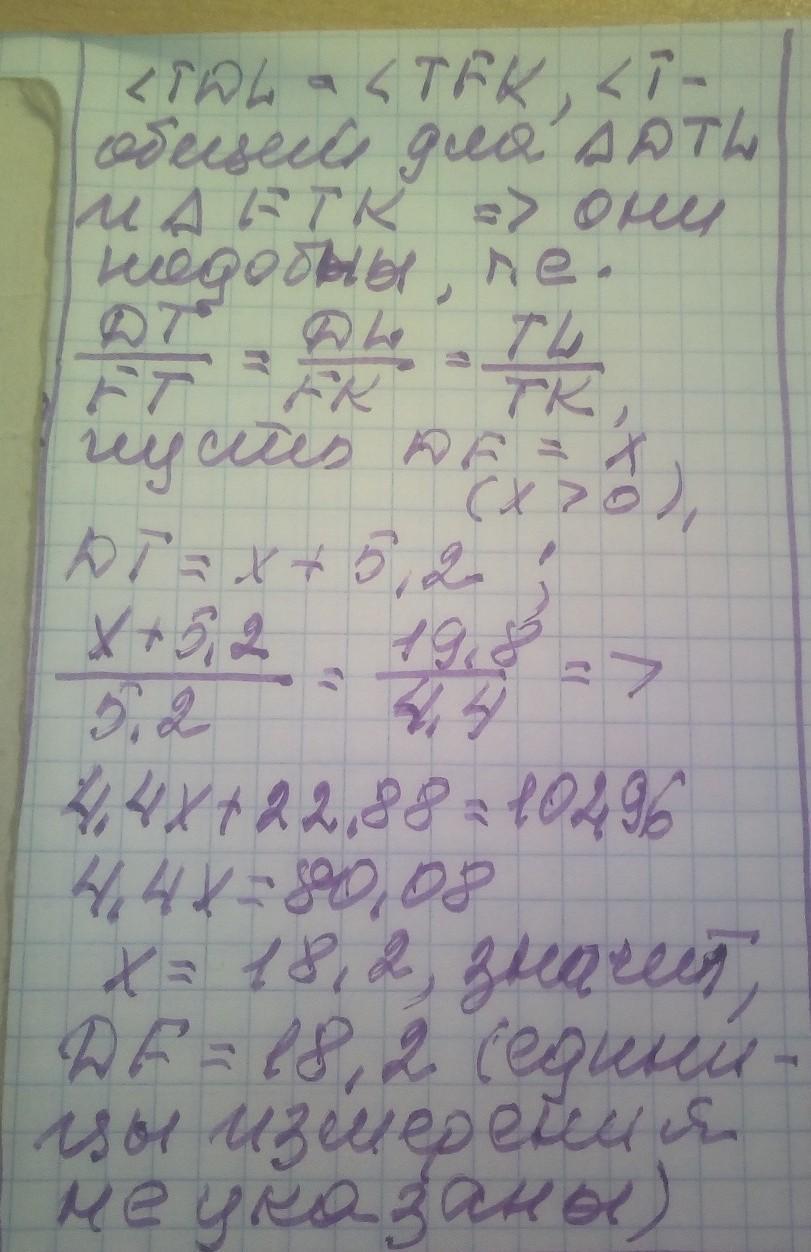 <TDL = <TFK, <T-
общий для ΔDTL
и ΔFTK => они
подобны, т.е.
DT/FT = DL/FK = TL/TK,
пусть DF = x
(x > 0),
DT = x + 5,2 ;
x+5,2/5,2 = 19,8/4,4 =>
4,4x+22,88=10296
4,4x=80,08
x = 18,2, значит,
DF = 18,2 (едини-
цы измерения
не указаны)